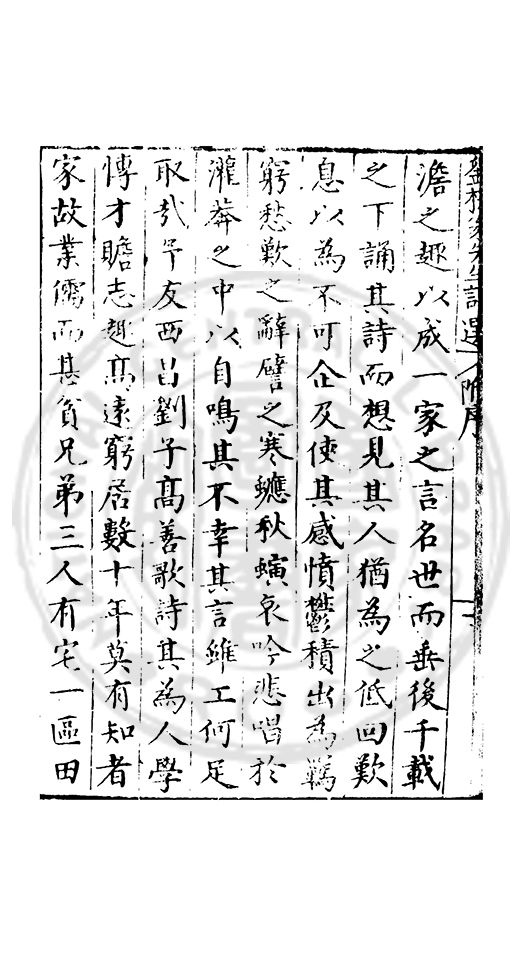 澹之趣以成一家之言名世而垂後千載
之下誦其詩而想見其人猶為之低回歎
息以為不可企及使其感憤鬱積出為羈
窮愁歎之辭譬之寒螿秋螾哀吟悲唱於
灌莽之中以自鳴其不幸其言雖工何足
取哉予友西昌劉子高善歌詩其為人學
愽才贍志趣高遠窮居數十年莫有知者
家故業儒而甚貧兄弟三人有宅一區田